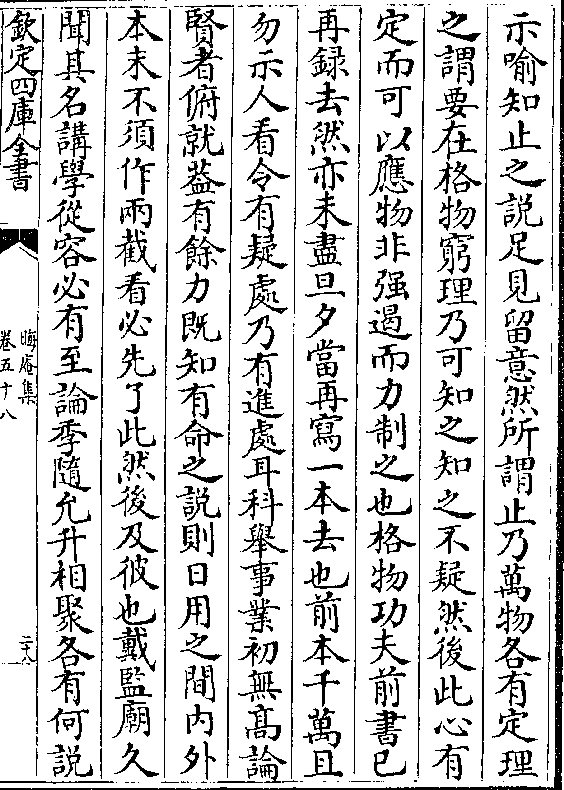 示喻知止之説足見留意然所謂止乃萬物各有定理
之謂要在格物窮理乃可知之知之不疑然後此心有
定而可以應物非强遏而力制之也格物功夫前書已
再録去然亦未盡旦夕當再寫一本去也前本千萬且
勿示人看令有疑處乃有進處耳科舉事業初無髙論
賢者俯就葢有餘力既知有命之説則日用之間内外
本末不須作兩截看必先了此然後及彼也戴監廟久
聞其名講學從容必有至論季隨允升相聚各有何説
欽定四庫全書
晦庵集
卷五十八
二十八